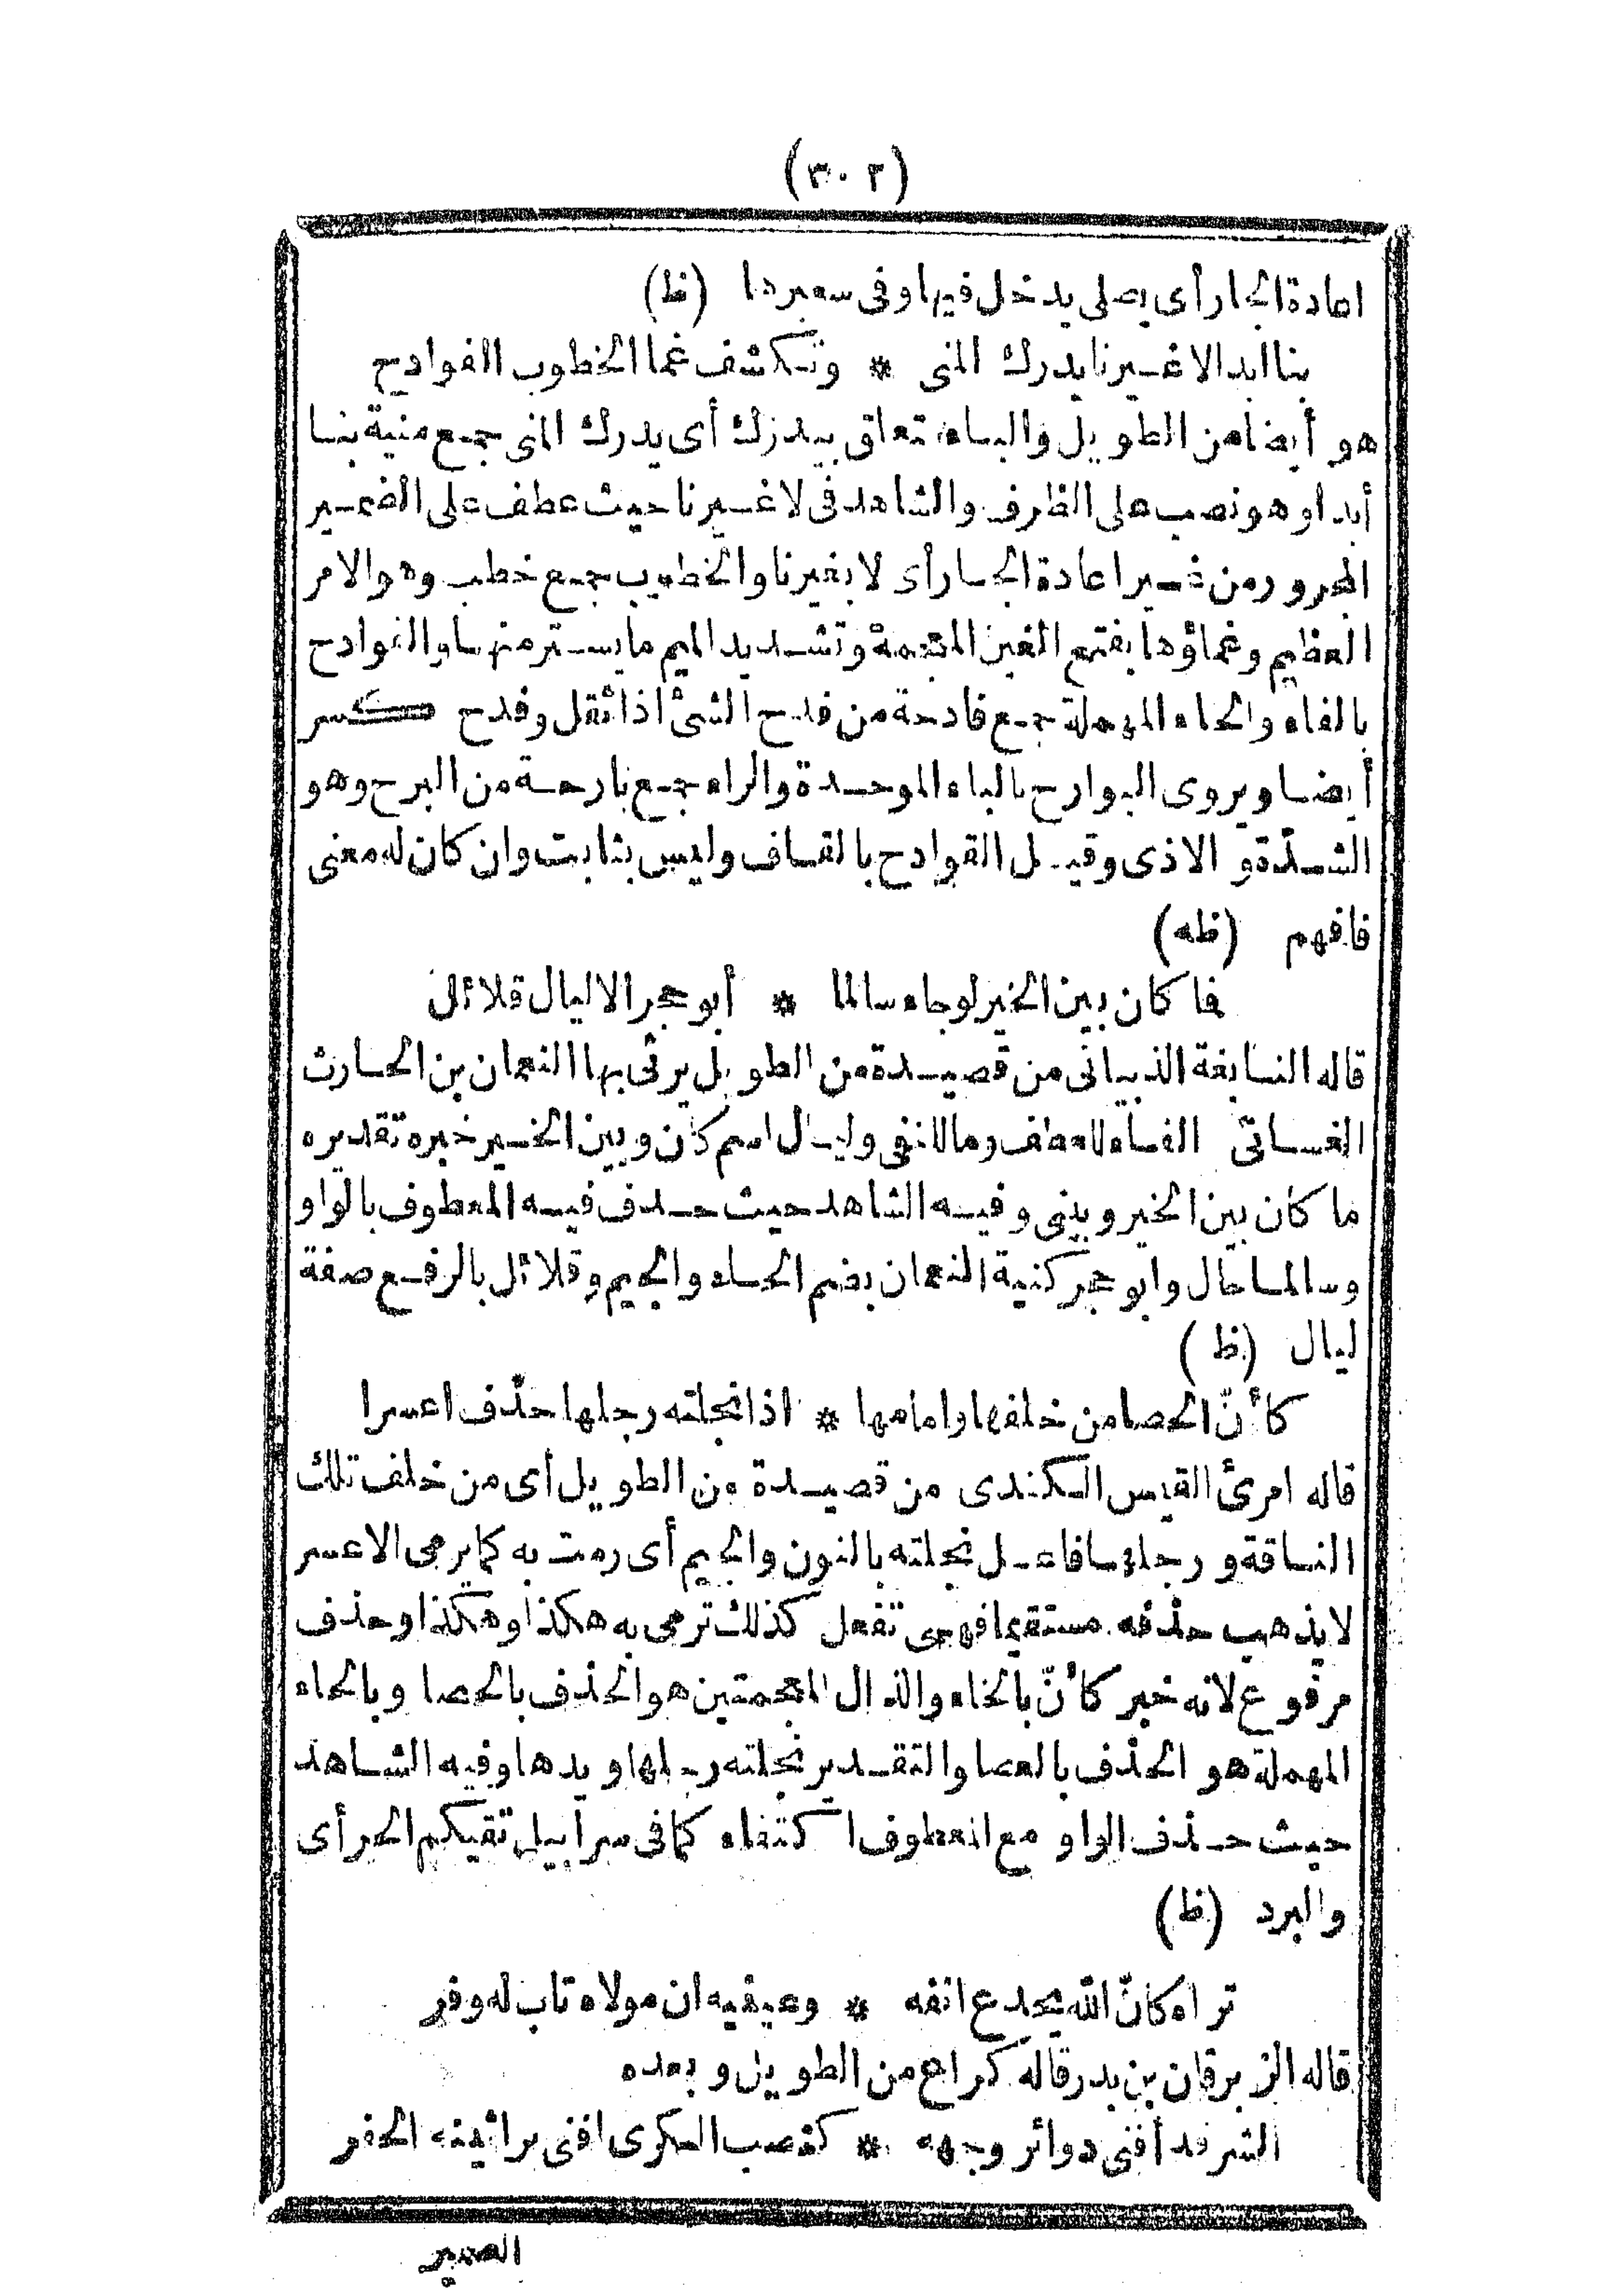 (٣٠٢)
اعادة الجار أى يصلى يدخل فيها وفى سعيرها (ظ)
بنا ابدا لا غيرنا يدرك المنى * وتكشف غما الخطوب الفوادح
هو أيضا من الطويل والباء تتعلق بيدرك أى يدرك المنى جمع منية بنا
أبدا وهو نصب على الظرف والشاهد فى لا غيرنا حيث عطف على الضمير
المجرور من غير اعادة الجار أى لا بغيرنا والخطوب جمع خطب وهو الامر
العظيم وغماؤها بفتح الغين المعجمة وتشديد الميم ما يستر منها والفوادح
بالفاء والحاء المهملة جمع فادحة من فدح الشئ اذا ثقل وفدح كسر
أيضا ويروى البوارح بالباء الموحدة والراء جمع بارحة من البرح وهو
الشدّة و الاذى وقيل القوادح بالقاف وليس بثابت وان كان له معنى
فافهم (ظه)
فما كان بين الخير لو جاء سالما * أبو حجر الا ليال قلائل
قاله النابغة الذبيانى من قصيدة من الطويل يرثى بها النعمان بن الحارث
الغسانىّ الفاء للعطف وما للنفى وليال اسم كان وبين الخير خبره تقديره
ما كان بين الخير وبينى وفيه الشاهد حيث حذف فيه المعطوف بالواو
وسالما حال وابو حجر كنية النعمان بضم الحاء والجيم وقلائل بالرفع صفة
ليال (ظ)
كأنّ الحصا من خلفها وامامها * اذا نجلته رجلها حذف اعسرا
قاله امرئ القيس الكندى من قصيدة من الطويل أى من خلف تلك
الناقة و رجلها فاعل نجلته بالنون والجيم أى رمت به كما يرمى الاعسر
لا يذهب حذفه مستقيما فهى تفعل كذلك ترمى به هكذا وهكذا وحذف
مرفوع لانه خبر كأنّ بالخاء والذال المعجمتين هو الحذف بالحصا وبالحاء
المهملة هو الحذف بالعصا والتقدير نجلته رجلها ويدها وفيه الشاهد
حيث حذف الواو مع المعطوف اكتفاء كما فى سرابيل تقيكم الحر أى
والبرد (ظ)
تراه كانّ الله يجدع انفه * وعينيه ان مولاه ثاب له وفر
قاله الزبرقان بن بدر قاله كراع من الطويل وبعده
الشر قد أفنى دوائر وجهه * كضب الكدى افنى براثينه الحفر